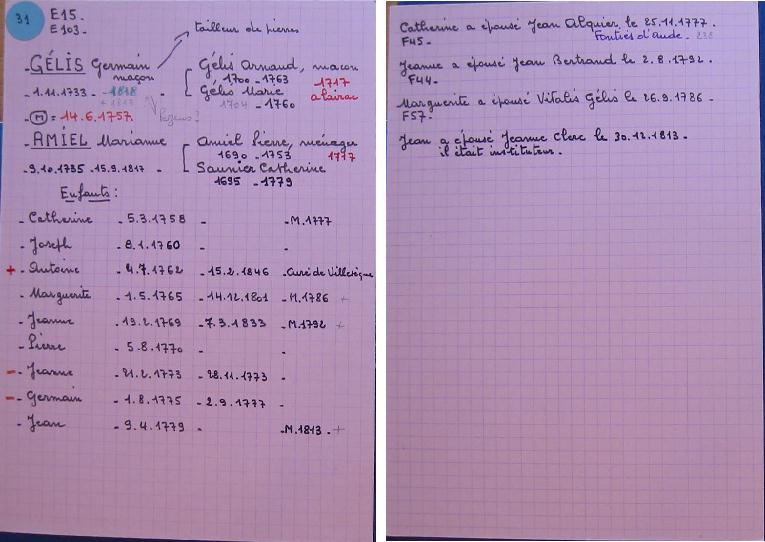 31
E15.
E103.
tailleur de pierres
- GÉLIS Germain
maçon
Gélis Arnaud, maçon
1700 - 1763
1717
à Lairac
- 1.11.1733 - 1818 -
+ 1813
Gélis Marie
1704 - 1760
- M = 14.6.1757.
- AMIEL Marianne
Amiel Pierre, ménager
1690 - 1753
1717
- 9.10.1735 - 15.9.1817 -
Saunier Catherine
1695 - 1779
Enfants :
- Catherine - 5.3.1758 - - M.1777
- Joseph - 8.1.1760 -
+ - Antoine - 4.7.1762 - 15.2.1846 - Curé de Villesèque
- Marguerite - 1.5.1765 - 14.12.1801 - M.1786 +
- Jeanne - 19.2.1769 - 7.3.1833 - M.1792 +
- Pierre - 5.8.1770 - -
- - Jeanne - 21.2.1773 - 28.11.1773 -
- - Germain - 1.8.1775 - 2.9.1777 -
- Jean - 9.4.1779 - - M.1813 - +
Catherine a épousé Jean Alquier le 25.11.1777.
F45 -
Fontiès d'Aude - 238
Jeanne a épousé Jean Bertrand le 2.8.1792 -
F44 -
Marguerite a épousé Vitalis Gélis le 26.9.1786 -
F57 -
Jean a épousé Jeanne Clerc le 30.12.1813 -
il était instituteur.